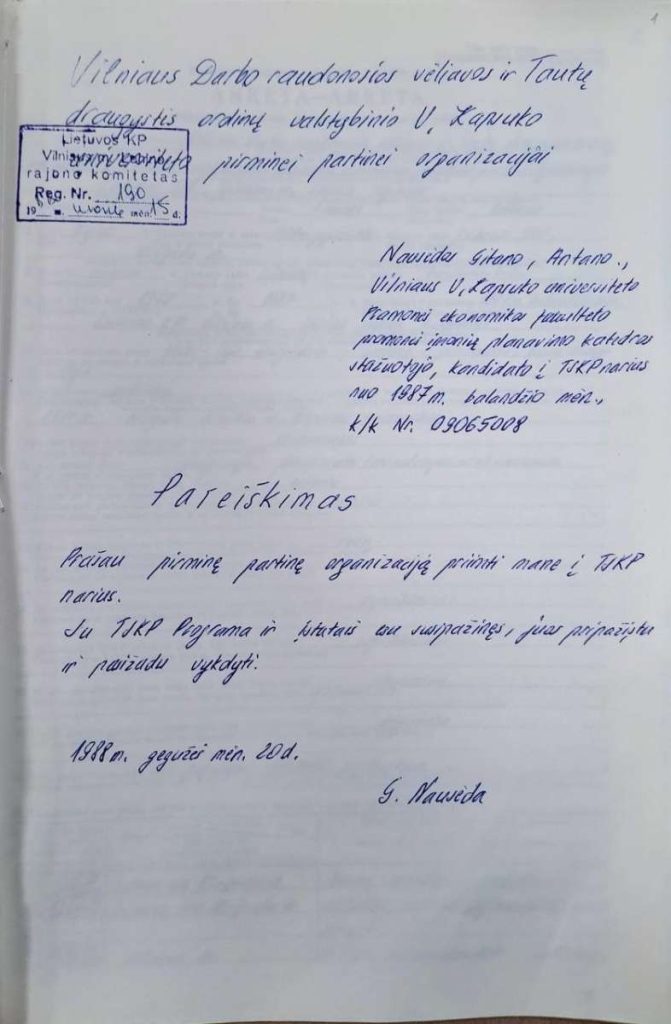 1
Vilniaus Darbo raudonosios vėliavos ir Tautų
draugystės ordinų valstybinio V. Kapsuko
universiteto pirminei partinei organizacijai
Lietuvos KP
Vilniaus m. Lenino
rajono komitetas
Reg. Nr. 190
19 m. mėn. 15 d.
Nausėdos Gitano, Antano.,
Vilniaus V. Kapsuko universiteto
Pramonės ekonomikos fakulteto
pramonės įmonių planavimo katedros
stažuotojo, kandidato į TSKP narius
nuo 1987 m. balandžio mėn.,
k/k Nr. 09065008
Pareiškimas
Prašau pirminę partinę organizaciją priimti mane į TSKP
narius.
Su TSKP Programa ir Įstatais esu susipažinęs, juos pripažįstu
ir pasižadu vykdyti.
1988 m. gegužės mėn. 20 d.
G. Nausėda